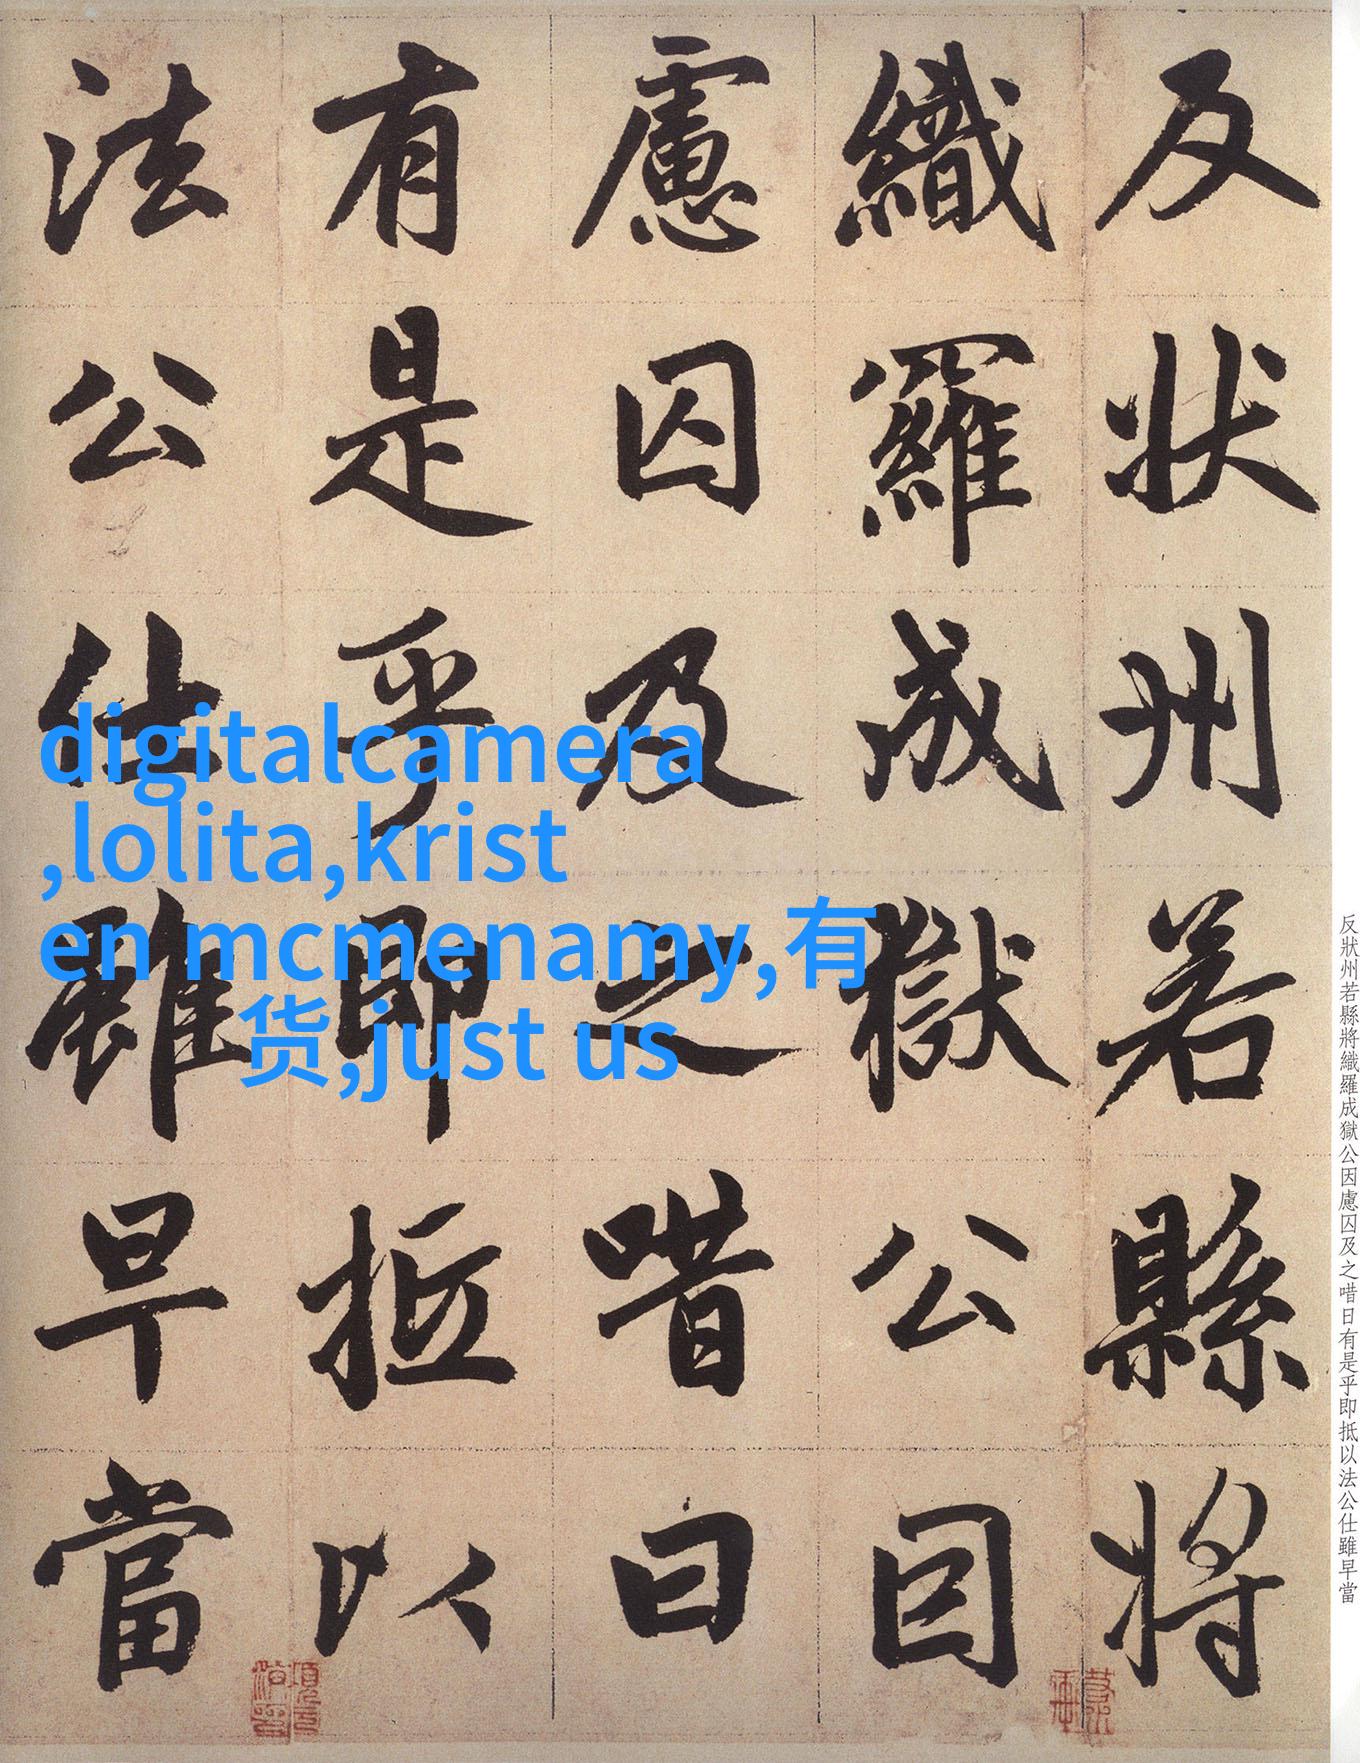 反狀州若縣將
織羅成獄公因
慮囚及之唶曰
有是乎即抵以
法公仕雖早當
digitalcamera
,lolita,krist
en mcmenamy,有
货,just us
反狀州若縣將織羅成獄公因慮囚及之唶日有是乎即抵以法公仕雖早當